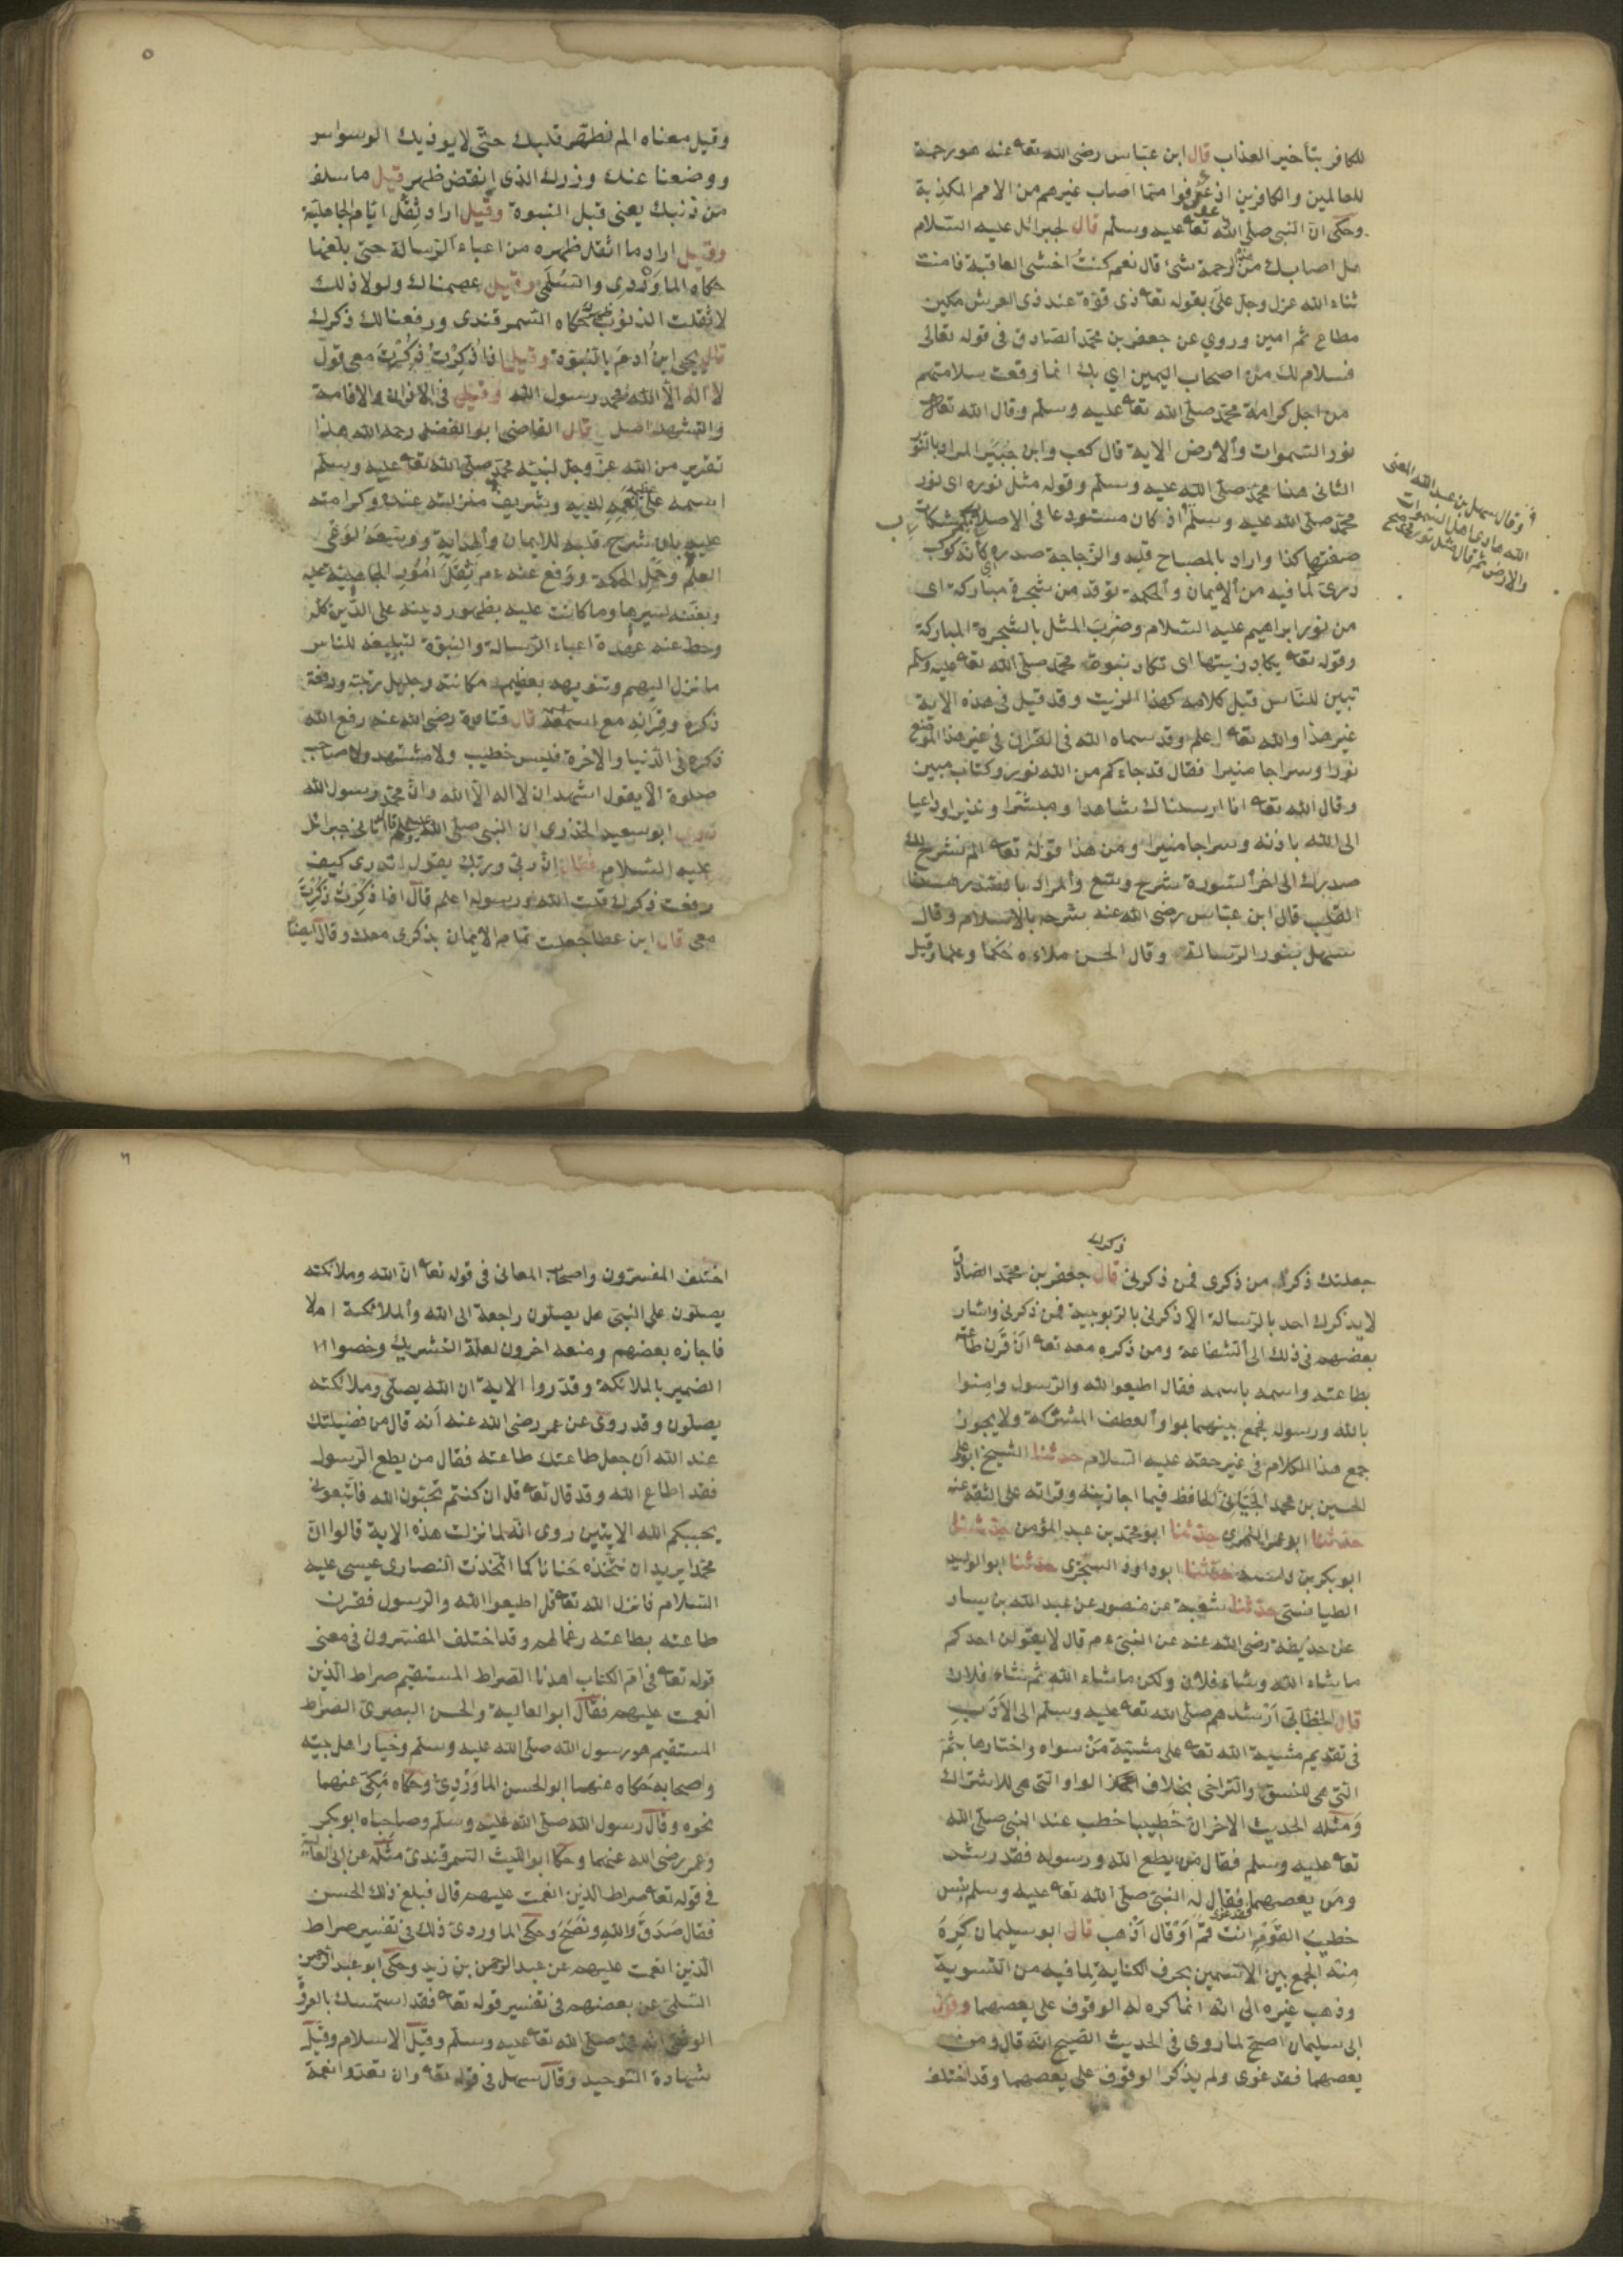 للكافر بتأخير العذاب قال ابن عباس رضى الله تعا عنه هو رحمة
للعالمين والكافرين اذ عوفوا مما اصاب غيرهم من الامم المكذبة
وحكى ان النبى صلى الله تعا عليه وسلم قال لجبرائل عليه السلام
هل اصابك من هذه الرحمة شئ قال نعم كنت اخشى العاقبة فامنت
ثناء الله عزل وجل على بقوله تعا ذى قوة عند ذى العرش مكين
مطاع ثم امين وروي عن جعفر بن محمد الصادق فى قوله تعالى
فسلام لك من اصحاب اليمين اي بك انما وقعت سلامتهم
من اجل كرامة محمد صلى الله تعا عليه وسلم وقال الله تعا
نور السموات والارض الاية قال كعب وابن جبير المراد بالنور
الثانى هنا محمد صلى الله عليه وسلم وقوله مثل نوره اى نور
وقال سهل بن عبد الله المعنى
الله هادى اهل السموات
والارض ثم قال مثل نور
محمد صلى الله عليه وسلم اذ كان مستودعا فى الاصلاب كمشكاة
صفتها كذا واراد بالمصباح قلبه والزجاجة صدره اى كأنه كوكب
درى لما فيه من الايمان والحكمة توقد من شجرة مباركة اى
من نور ابراهيم عليه السلام وضرب المثل بالشجرة المباركة
وقوله تعا يكاد زيتها اى تكاد نبوة محمد صلى الله تعا عليه وسلم
تبين للناس قبل كلامه كهذا الزيت وقد قيل فى هذه الاية
غير هذا والله تعا اعلم وقد سماه الله فى القران فى غير هذا الموضع
نورا وسراجا منيرا فقال قد جاءكم من الله نور وكتاب مبين
وقال الله تعا انا ارسلناك شاهدا ومبشرا ونذيرا وداعيا
الى الله باذنه وسراجا منيرا ومن هذا قوله تعا الم نشرح لك
صدرك الى اخر السورة شرح وسع والمراد بالصدر هنا
القلب قال ابن عباس رضى الله عنه شرحه بالاسلام وقال
سهل بنور الرسالة وقال الحسن ملاءه حكما وعلما وقيل
٥
وقيل معناه الم نطهر قلبك حتى لا يوذيك الوسواس
ووضعنا عنك وزرك الذى انقض ظهرك قيل ما سلف
من ذنبك يعنى قبل النبوة وقيل اراد ثقل ايام الجاهلية
وقيل اراد ما اثقل ظهره من اعباء الرسالة حتى بلغها
حكاه الماوردى والسلمى وقيل عصمناك ولولا ذلك
لاثقلت الذنوب ظهرك حكاه السمرقندى ورفعنا لك ذكرك
قال يحيى ابن ادم بالنبوة وقيل اذا ذكرت ذكرت معى قول
لا اله الا الله محمد رسول الله وقيل فى الاذان والاقامة
والتشهد اصل قال القاضى ابو الفضل رحمه الله هذا
تقرير من الله عز وجل لنبيه محمد صلى الله تعا عليه وسلم
اسمه على عظيم نعمه لديه وشريف منزلته عنده وكرامته
عليه بان شرح قلبه للايمان والهداية ووسعه لوعى
العلم وحمل الحكمة ورفع عنه ثقل امور الجاهلية عليه
وبغضه لسيرها وما كانت عليه بظهور دينه على الدين كله
وحط عنه عهدة اعباء الرسالة والنبوة لتبليغه للناس
ما نزل اليهم وتنويهه بعظيم مكانته وجليل رتبته ورفعة
ذكره وقرانه مع اسمه اسمه قال قتادة رضى الله عنه رفع الله
ذكره فى الدنيا والاخرة فليس خطيب ولا متشهد ولا صاحب
صلوة الا يقول اشهد ان لا اله الا الله وان محمد رسول الله
روى ابو سعيد الخذرى ان النبى صلى الله عليه وسلم قال اتانى جبرائل
عليه السلام فقال ان ربى وربك يقول اتدرى كيف
رفعت ذكرك قلت الله ورسوله اعلم قال اذا ذكرت ذكرت
معى قال ابن عطا جعلت تمام الايمان بذكرى معك وقال ايضا
جعلتك ذكرا من ذكرى فمن ذكرك ذكرنى قال جعفر بن محمد الصادق
لا يذكرك احد بالرسالة الا ذكرنى بالربوبية فمن ذكرنى واشار
بعضهم فى ذلك الى الشفاعة ومن ذكره معه تعا ان قرن طاعته
بطاعته واسمه باسمه فقال اطيعوا الله والرسول وامنوا
بالله ورسوله فجمع بينهما بواو العطف المشركة ولا يجوز
جمع هذا الكلام فى غير حقه عليه السلام حدثنا الشيخ ابو على
الحسين بن محمد الجيانى الحافظ فيما اجازنيه وقراته على الثقة عنه
حدثنا ابو عمر النمرى حدثنا ابو محمد بن عبد المؤمن حدثنا
ابو بكر بن داسه حدثنا ابو داود السجزى حدثنا ابو الوليد
الطيالستى حدثنا شعبة عن منصور عن عبد الله بن يسار
عن حذيفة رضى الله عنه عن النبى ءم قال لا يقولن احدكم
ما شاء الله وشاء فلان ولكن ما شاء الله ثم شاء فلان
قال الخطابى ارشدهم صلى الله تعا عليه وسلم الى الادب
فى تقديم مشية الله تعا على مشية من سواه واختارها بثم
التى هى للنسق والتراخى بخلاف الواو التى هى للاشتراك
ومثله الحديث الاخر ان خطيبا خطب عند النبى صلى الله
تعا عليه وسلم فقال من يطع الله ورسوله فقد رشد
ومن يعصهما فقال له النبى صلى الله تعا عليه وسلم بئس
خطيب القوم انت قم او قال اذهب قال ابو سليمان كره
منه الجمع بين الاسمين بحرف الكناية لما فيه من التسوية
وذهب غيره الى انه انما كره له الوقوف على يعصهما وقول
ابى سليمان اصح لما روى فى الحديث الصحيح انه قال ومن
يعصهما فقد غوى ولم يذكر الوقوف على يعصهما وقد اختلف
٦
اختلف المفسرون واصحاب المعانى فى قوله تعا ان الله وملائكته
يصلون على النبى هل يصلون راجعة الى الله والملائكة ام لا
فاجازه بعضهم ومنعه اخرون لعلة التشريك وخصوا
الضمير بالملائكة وقدروا الاية ان الله يصلى وملائكته
يصلون وقد روى عن عمر رضى الله عنه انه قال من فضيلتك
عند الله ان جعل طاعتك طاعته فقال من يطع الرسول
فقد اطاع الله وقد قال تعا قل ان كنتم تحبون الله فاتبعونى
يحببكم الله الايتين روى انه لما نزلت هذه الاية قالوا ان
محمدا يريد ان نتخذه حنانا كما اتخذت النصارى عيسى عليه
السلام فانزل الله تعا قل اطيعوا الله والرسول فقرن
طاعته بطاعته رغما لهم وقد اختلف المفسرون فى معنى
قوله تعا فى ام الكتاب اهدنا الصراط المستقيم صراط الذين
انعمت عليهم فقال ابو العالية والحسن البصرى الصراط
المستقيم هو رسول الله صلى الله عليه وسلم وخيار اهل بيته
واصحابه حكاه عنهما ابو الحسن الماوردى وحكاه مكى عنهما
نحوه وقال رسول الله صلى الله عليه وسلم وصاحباه ابو بكر
وعمر رضى الله عنهما وحكا ابو الليث السمرقندى مثله عن ابى العالية
فى قوله تعا صراط الذين انعمت عليهم قال فبلغ ذلك الحسن
فقال صدق والله ونصح وحكى الماوردى ذلك فى تفسير صراط
الذين انعمت عليهم عن عبد الرحمن بن زيد وحكى ابو عبد الرحمن
السلمى عن بعضهم فى تفسير قوله تعا فقد استمسك بالعروة
الوثقى انه محمد صلى الله تعا عليه وسلم وقيل الاسلام وقيل
شهادة التوحيد وقال سهل فى قوله تعا وان تعدوا نعمة